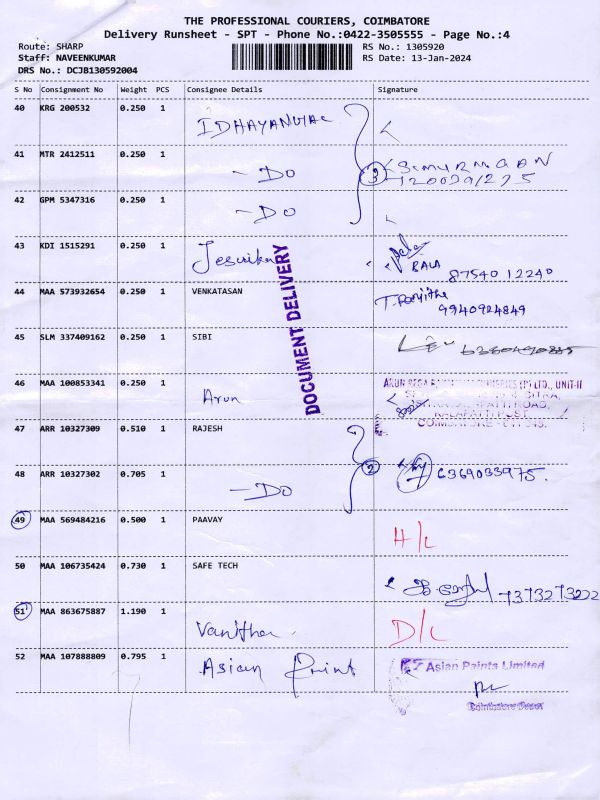 THE PROFESSIONAL COURIERS, COIMBATORE
Delivery Runsheet - SPT - Phone No.:0422-3505555 - Page No.:4
Route: SHARP
Staff: NAVEENKUMAR
DRS No.: DCJB130592004
RS No.: 1305920
RS Date: 13-Jan-2024
S No Consignment No Weight PCS Consignee Details Signature
40 KRG 200532 0.250 1
41 MTR 2412511 0.250 1 - DO 3
42 GPM 5347316 0.250 1 - DO
43 KDI 1515291 0.250 1 BALA 87540 12240
DOCUMENT DELIVERY
44 MAA 573932654 0.250 1 VENKATASAN T. Ranjitha 9940924849
45 SLM 337409162 0.250 1 SIBI
46 MAA 100853341 0.250 1 Arun
LTD., UNIT-II
47 ARR 10327309 0.510 1 RAJESH
48 ARR 10327302 0.705 1 - DO 2 6369033975.
49 MAA 569484216 0.500 1 PAAVAY H/L
50 MAA 106735424 0.730 1 SAFE TECH 7373273222
51 MAA 863675887 1.190 1 Vanitha D/L
52 MAA 107888809 0.795 1 Asian Print
Asian Paints Limited
Coimbatore Depot